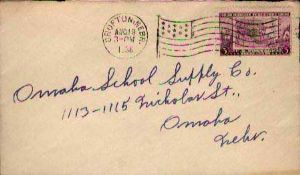 CROFTON, NEBR.
AUG 18
3-PM
Omaha School Supply Co.
1113-1115 Nicholas St.,
Omaha
Nebr.